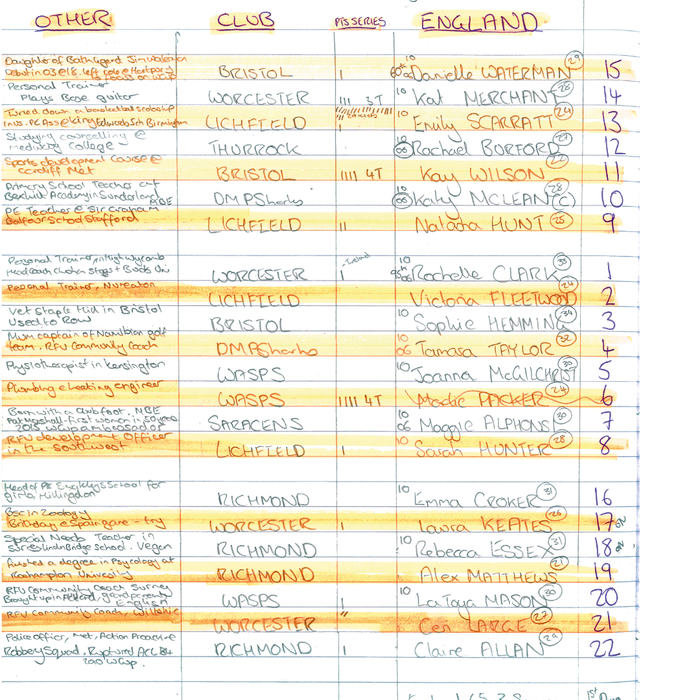 OTHER CLUB Pts SERIES ENGLAND
Daughter of Bath legend Jim Waterman
BRISTOL 1 Danielle WATERMAN 29 15
Personal Trainer
Plays Base guitar WORCESTER 111 3T 10 Kat MERCHANT 28 14
Turned down a basketball scholarship
King Edwards Sch Birmingham LICHFIELD 1 10 Emily SCARRATT 24 13
Studying counselling @
medway College THURROCK 10 06 Rachael BURFORD 12
Sports development Course @
Cardiff Met BRISTOL 1111 4T Kay WILSON 22 11
Primary School Teacher at
Academy in Sunderland MBE DMP Sharks 10 06 Katy MCLEAN (C) 28 10
PE Teacher @ Sir Graham
Balfour School Stafford LICHFIELD 11 Natasha HUNT 25 9
Personal Trainer, in High Wycomb
Head Coach Chesham Stags + Bucks Uni WORCESTER 1 10 06 Rochelle CLARK 33 1
Personal Trainer, Nuneaton
LICHFIELD Victoria FLEETWOOD 24 2
Vet Staple Hill in Bristol
Used to Row BRISTOL 10 Sophie HEMMING 34 3
Mum captain of Namibian golf
team. RFU Community Coach DMP Sharks 10 06 Tamara TAYLOR 32 4
Physiotherapist in Kensington
WASPS 10 Joanna McGILCHRIST 30 5
Plumbing & heating engineer
WASPS 1111 4T PACKER 24 6
Born with a Club foot. MBE
first woman in 50 years
2015 WCup ambassador SARACENS 10 06 Maggie ALPHONSI 30 7
RFU development Officer
in the southwest LICHFIELD 1 10 Sarah HUNTER 28 8
Head of PE School for
girls Hillingdon RICHMOND 10 Emma CROKER 31 16
Bsc in Zoology
Birthday WORCESTER 1 Laura KEATES 26 17
Special Needs Teacher in
School. Vegan RICHMOND 10 Rebecca ESSEX 31 18
a degree in Psychology at
Roehampton University RICHMOND Alex MATTHEWS 21 19
RFU Community Coach Surrey
WASPS 1 10 LaToya MASON 30 20
RFU Community Coach, Wiltshire
WORCESTER 11 Ceri LARGE 27 21
Police officer, Met, Action Proactive
Robbery Squad. Ruptured ACL B4
RICHMOND 1 10 Claire ALLAN 29 22